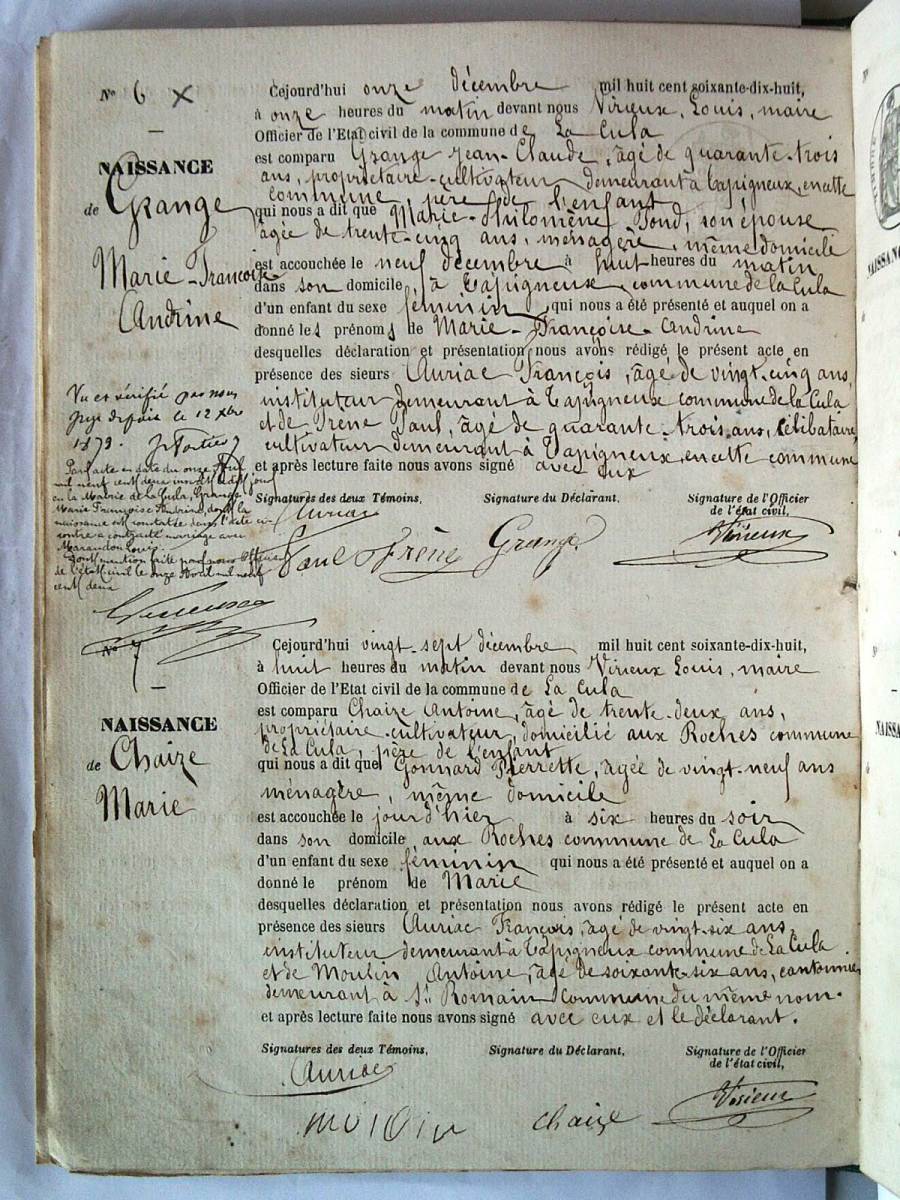 N° 6 x
NAISSANCE
de Grange
Marie-Françoise
Andrine
Vu et vérifié par nous
Juge depuis le 12 xbre
1879.
Par acte en date du onze Avril
mil neuf cent deux inscrit led. jour
en la Mairie de la Cula, Grange
Marie Françoise Andrine, dont la
naissance est constatée dans l'acte ci-
contre a contracté mariage avec
Marandon Louis.
Dont mention faite par nous Officier
de l'état civil le onze Avril mil neuf
cent deux
Cejourd'hui onze décembre mil huit cent soixante-dix-huit,
à onze heures du matin devant nous Virieux, Louis, maire
Officier de l'Etat civil de la commune de La Cula
est comparu Grange Jean-Claude, âgé de quarante-trois
ans, propriétaire-cultivateur demeurant à Tapigneux, en cette
commune, père de l'enfant
qui nous a dit que Marie-Philomène Pond, son épouse
âgée de trente-cinq ans, ménagère, même domicile
est accouchée le neuf décembre à huit heures du matin
dans son domicile, à Tapigneux commune de la Cula
d'un enfant du sexe féminin, qui nous a été présenté et auquel on a
donné les prénoms de Marie-Françoise-Andrine
desquelles déclaration et présentation nous avons rédigé le présent acte en
présence des sieurs Auriac François, âgé de vingt-cinq ans,
instituteur demeurant à Tapigneux commune de la Cula
et de Frène Paul, âgé de quarante-trois ans, célibataire,
cultivateur demeurant à Tapigneux, en cette commune
et après lecture faite nous avons signé avec eux
Signatures des deux Témoins, Signature du Déclarant, Signature de l'Officier
de l'état civil,
Auriac
Paul Frène Grange Virieux
N° 7
NAISSANCE
de Chaize
Marie
Cejourd'hui vingt-sept décembre mil huit cent soixante-dix-huit,
à huit heures du matin devant nous Virieux Louis, maire
Officier de l'Etat civil de la commune de La Cula
est comparu Chaize Antoine, âgé de trente-deux ans,
propriétaire-cultivateur, domicilié aux Roches commune
de La Cula, père de l'enfant
qui nous a dit que Gonnard Pierrette, âgée de vingt-neuf ans
ménagère, même domicile
est accouchée le jour d'hier à six heures du soir
dans son domicile aux Roches commune de La Cula
d'un enfant du sexe féminin qui nous a été présenté et auquel on a
donné le prénom de Marie
desquelles déclaration et présentation nous avons rédigé le présent acte en
présence des sieurs Auriac François, âgé de vingt-six ans,
instituteur demeurant à Tapigneux commune de La Cula
et de Moulin Antoine, âgé de soixante-six ans, cantonnier
demeurant à St Romain commune du même nom.
et après lecture faite nous avons signé avec eux et le déclarant.
Signatures des deux Témoins, Signature du Déclarant, Signature de l'Officier
de l'état civil,
Auriac
Moulin Chaize Virieux